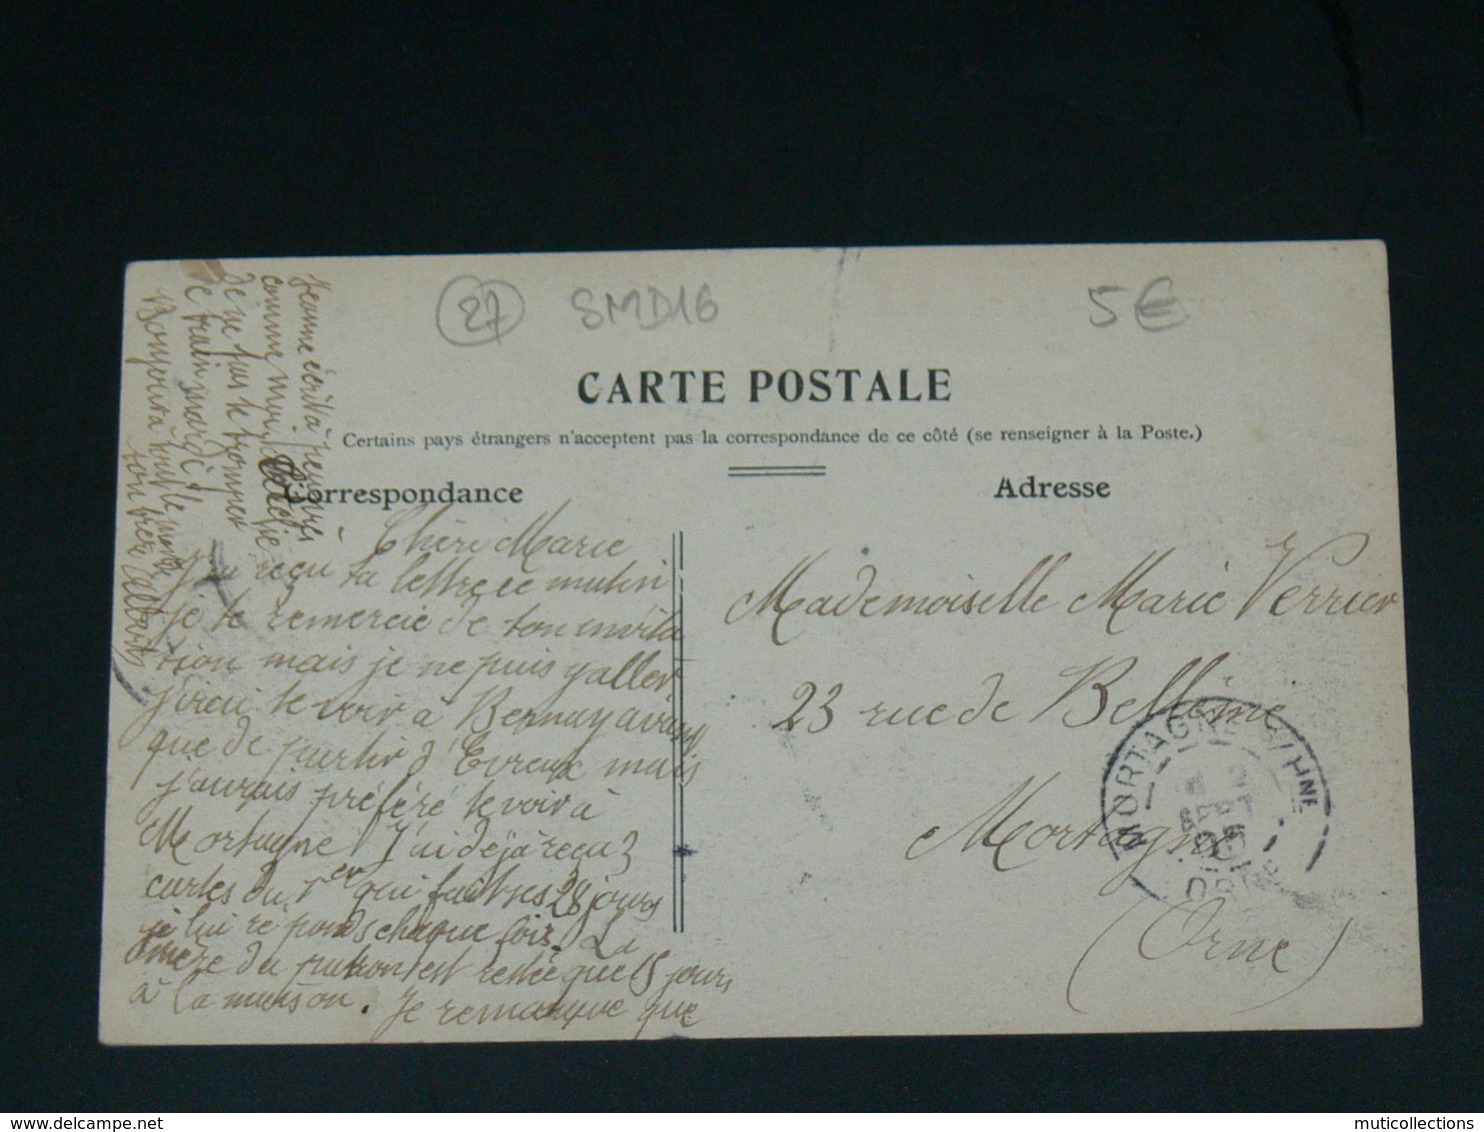 27 SMD16 5€
CARTE POSTALE
Certains pays étrangers n'acceptent pas la correspondance de ce côté (se renseigner à la Poste.)
Correspondance
Adresse
Chère Marie
J'ai reçu ta lettre ce matin
je te remercie de ton invita
tion mais je ne puis y aller
j'irai te voir à Bernay avant
que de partir d'Evreux mais
j'aurais préféré te voir à
Mortagne J'ai déjà reçu 3
cartes du 1er qui fait ses 28 jours
je lui réponds chaque fois. La
mère du patron est restée que 15 jours
à la maison. Je remarque que
Jeanne écrit à
comme moi
Je ne pas te tromper
le train mardi
Bonjour à tout le monde
ton frère Albert
Mademoiselle Marie Verrier
23 rue de Bellême
Mortagne
(Orne)
MORTAGNE-S/HNE
SEPT
05